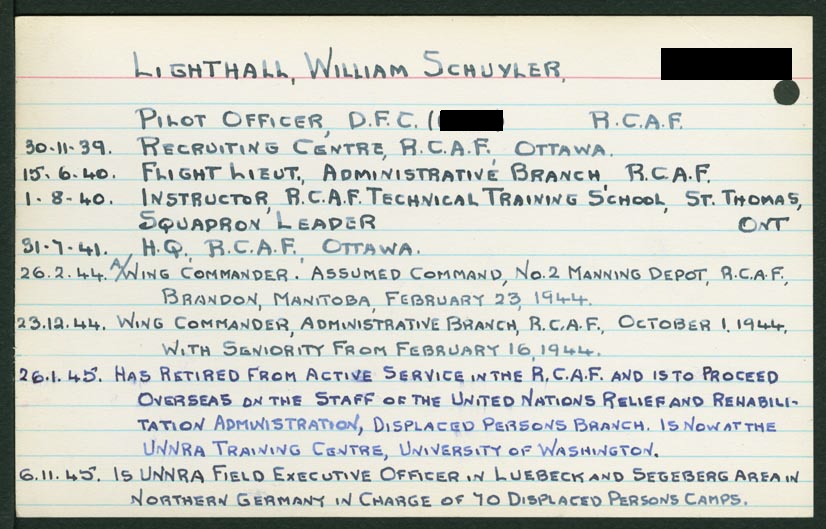 LIGHTHALL, WILLIAM SCHUYLER,
PILOT OFFICER, D.F.C. ( R.C.A.F.
30-11-39. RECRUITING CENTRE, R.C.A.F. OTTAWA.
15.6.40. FLIGHT LIEUT., ADMINISTRATIVE BRANCH R.C.A.F.
1-8-40. INSTRUCTOR, R.C.A.F. TECHNICAL TRAINING SCHOOL, ST. THOMAS,
SQUADRON LEADER ONT
31-7-41. H.Q., R.C.A.F., OTTAWA.
26.2.44. A/WING COMMANDER. ASSUMED COMMAND, NO.2 MANNING DEPOT, R.C.A.F.,
BRANDON, MANITOBA, FEBRUARY 23, 1944.
23.12.44. WING COMMANDER, ADMINISTRATIVE BRANCH, R.C.A.F., OCTOBER 1, 1944,
WITH SENIORITY FROM FEBRUARY 16, 1944.
26.1.45. HAS RETIRED FROM ACTIVE SERVICE IN THE R.C.A.F. AND IS TO PROCEED
OVERSEAS ON THE STAFF OF THE UNITED NATIONS RELIEF AND REHABILI-
TATION ADMINISTRATION, DISPLACED PERSONS BRANCH. IS NOW AT THE
UNNRA TRAINING CENTRE, UNIVERSITY OF WASHINGTON.
6.11.45. IS UNNRA FIELD EXECUTIVE OFFICER IN LUEBECK AND SEGEBERG AREA IN
NORTHERN GERMANY IN CHARGE OF 70 DISPLACED PERSONS CAMPS.